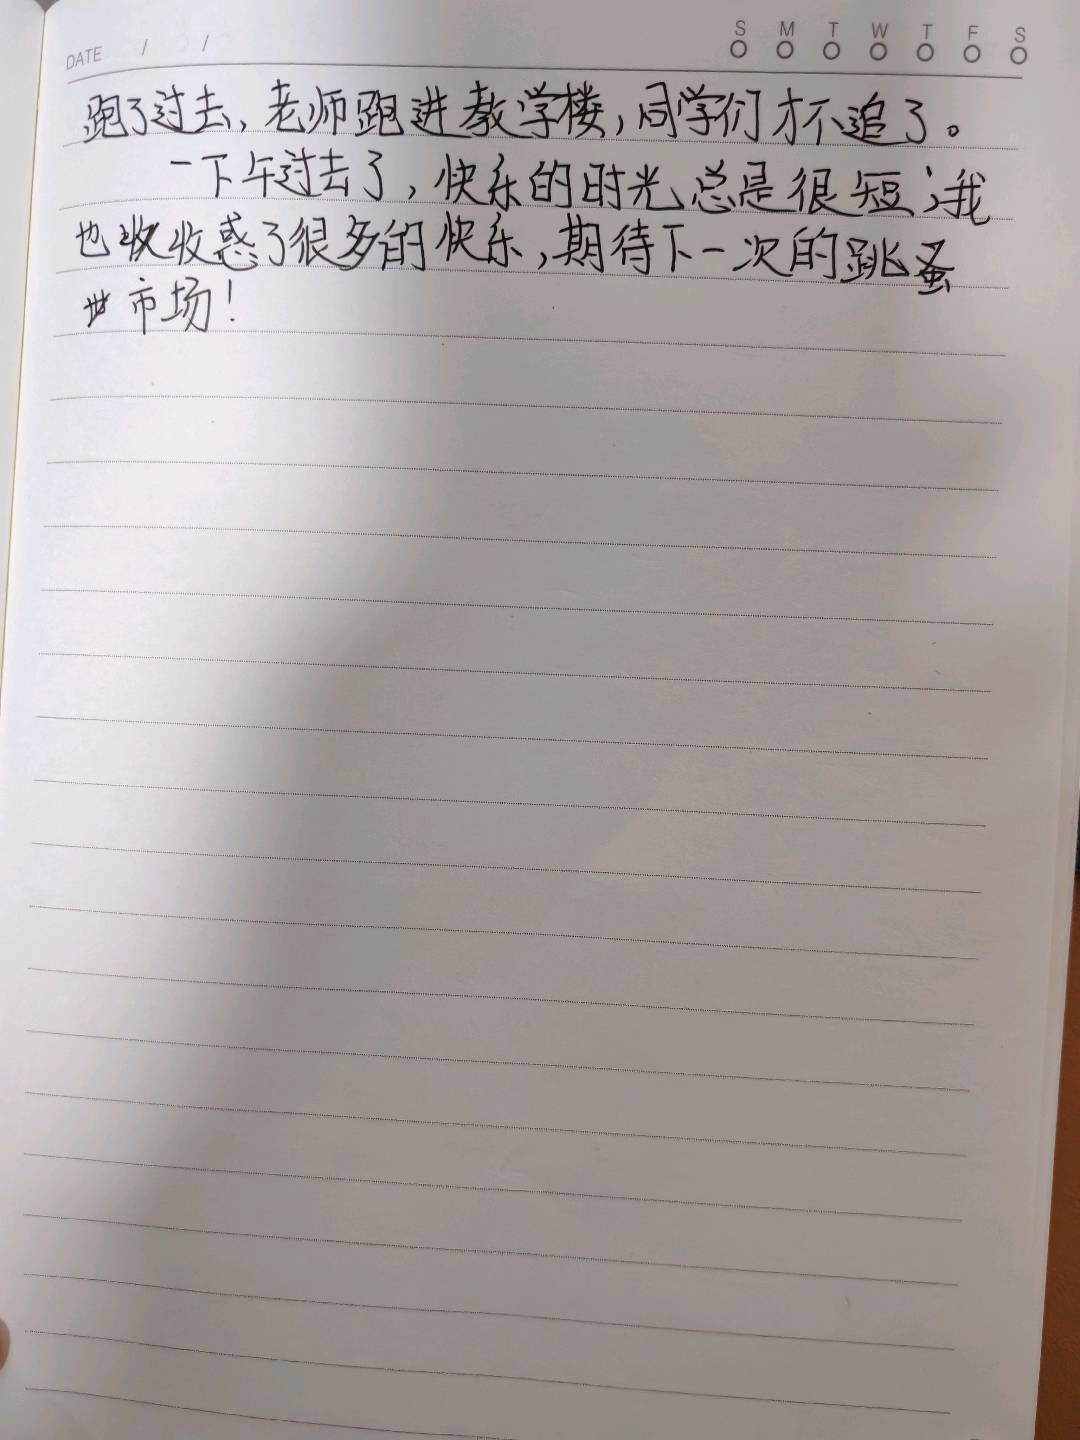 DATE / /
S M T W T F S
跑了过去,老师跑进教学楼,同学们才不追了。
一下午过去了,快乐的时光总是很短;我
也收惑了很多的快乐,期待下一次的跳蚤
市场!